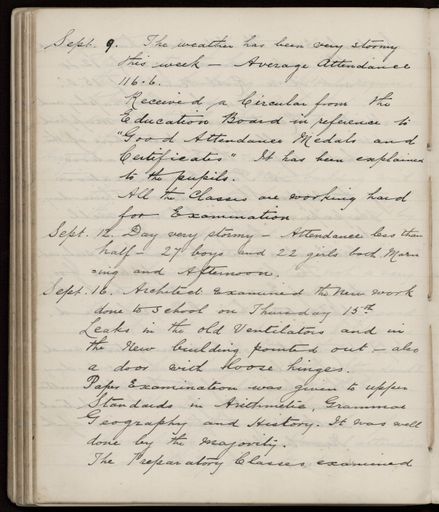 Sept. 9. The weather has been very stormy
this week - Average Attendance
116.6.
Received a Circular from the
Education Board in reference to
"Good Attendance Medals and
Certificates" It has been explained
to the pupils.
All the Classes are working hard
for Examination
Sept. 12. Day very stormy - Attendance less than
half - 27 boys and 22 girls both Morn
ing and Afternoon.
Sept. 16. Architect Examined the New work
done to School on Thursday 15th
Leaks in the old Ventilators and in
the New building pointed out - also
a door with loose hinges.
Paper Examination was given to upper
Standards in Arithmetic, Grammar
Geography and History. It was well
done by the majority.
The Preparatory Classes examined